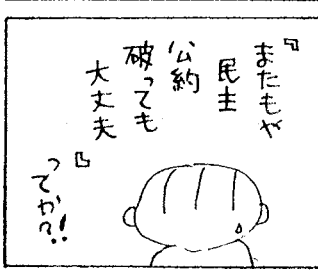 『またもや
民主
公約
破っても
大丈夫
』
ってか?!